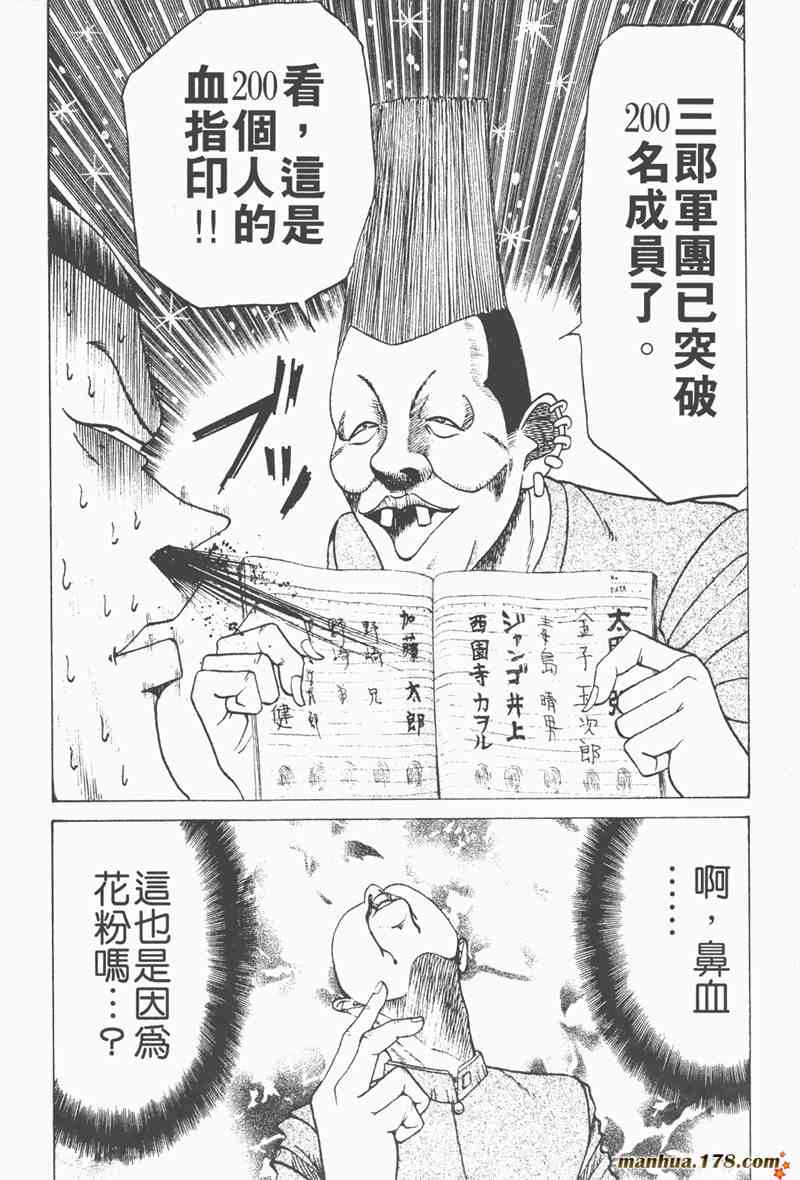 三郎軍團已突破
200名成員了。
看，這是
200個人的
血指印!!
ズバッ
太
金子玉次郎
毒島晴男
ジャンゴ井上
西園寺カヲル
加藤太郎
野崎兄
野崎弟
健
啊，鼻血
……
這也是因為
花粉嗎…?
manhua.178.com